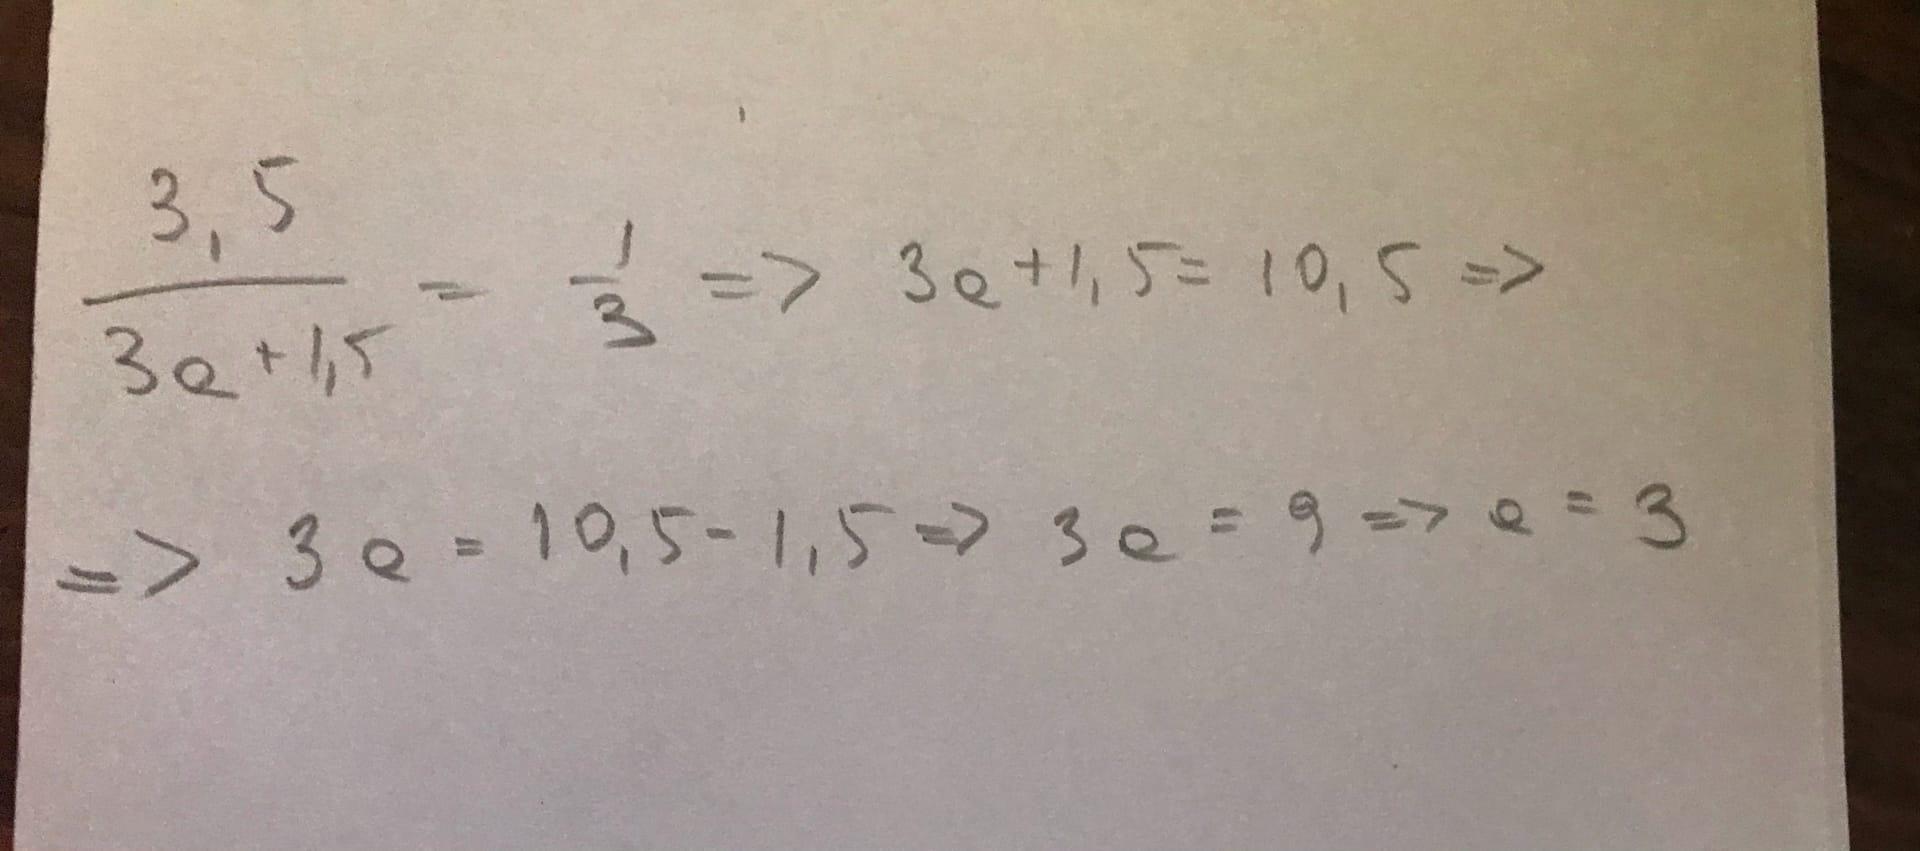 3,5/3a+1,5 = 1/3 => 3a+1,5=10,5 =>
=> 3a = 10,5-1,5 => 3a = 9 => a = 3